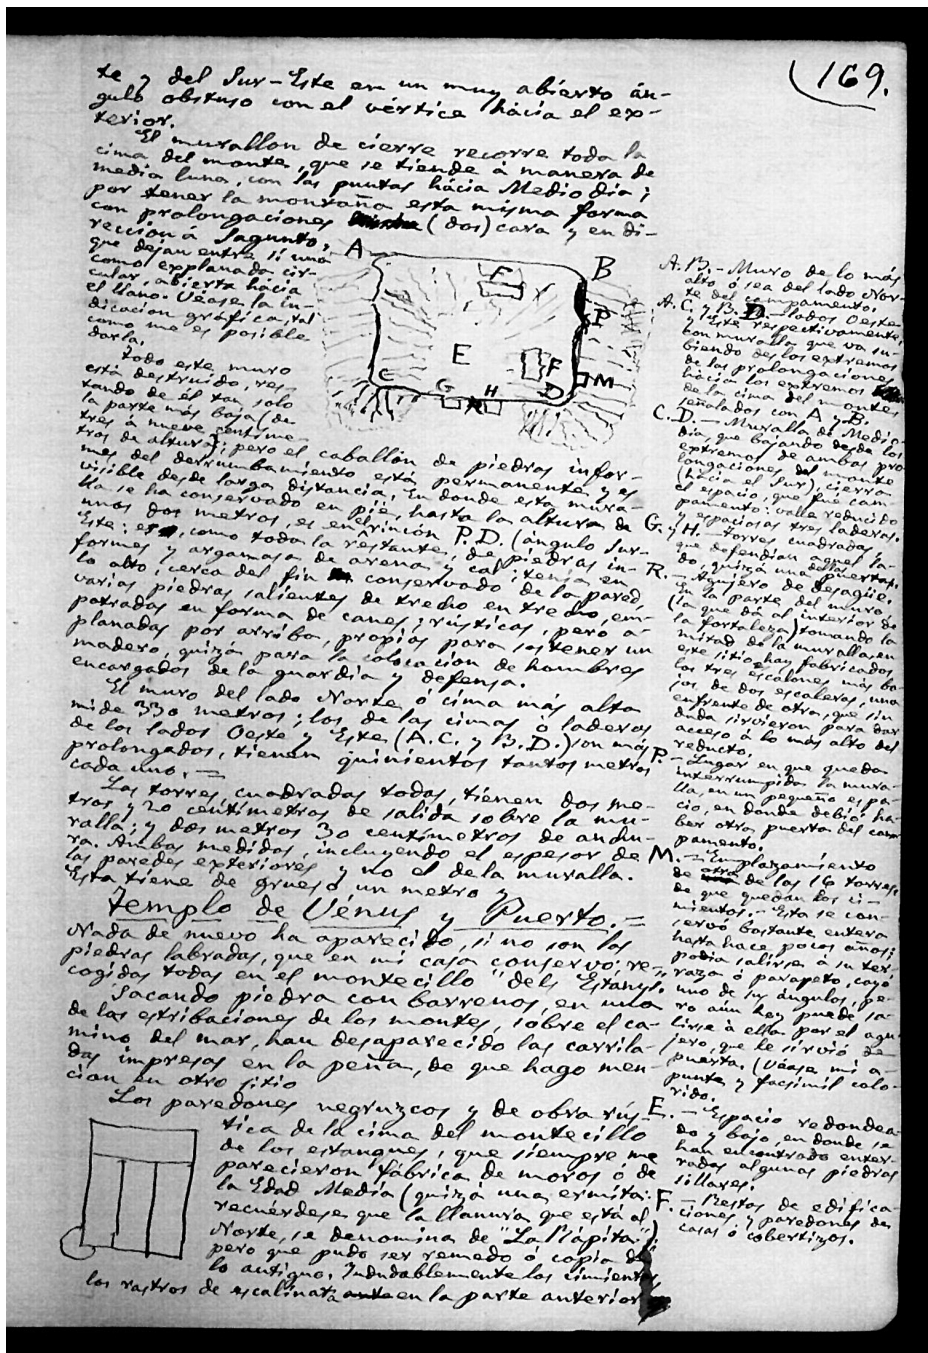 169.
te y del Sur-Este en un muy abierto án-
gulo obstuso con el vértice hácia el ex-
terior.
El murallon de cierre recorre toda la
cima del monte, que se tiende á manera de
media luna, con las puntas hácia Mediodia;
por tener la montaña esta misma forma
con prolongaciones (dos) cara y en di-
reccion á Sagunto,
que dejan entre sí una
como explanada cir-
cular, abierta hácia
el llano. Véase la in-
dicacion gráfica, tal
como me es posible
darla.
Todo este muro
está destruido, res-
tando de él tan solo
la parte más baja (de
tres á nueve centíme-
tros de altura); pero el caballon de piedras infor-
mes del derrumbamiento está permanente y es
visible desde larga distancia. En donde esta mura-
lla se ha conservado en pie, hasta la altura de
unos dos metros, es en el rincón P.D. (ángulo Sur-
Este: es, como toda la restante, de piedras in-
formes y argamasa de arena y cal; tenia en
lo alto, cerca del fin conservado de la pared,
varias piedras salientes de trecho en trecho, em-
potradas en forma de canes; rústicas, pero a-
planadas por arriba, propias para sostener un
madero, quizás para la colocacion de hombres
encargados de la guardia y defensa.
El muro del lado Norte ó cima más alta
mide 330 metros; los de las cimas ó laderas
de los lados Oeste y Este (A.C. y B.D.) son más
prolongados, tienen quinientos tantos metros
cada uno. =
Las torres, cuadradas todas, tienen dos me-
tros y 20 centímetros de salida sobre la mu-
ralla; y dos metros 30 centímetros de anchu-
ra. Ambas medidas, incluyendo el espesor de
las paredes exteriores y no el de la muralla.
Esta tiene de grueso un metro y
Templo de Vénus y Puerto. =
Nada de nuevo ha aparecido, si no son las
piedras labradas, que en mi casa conservo; re-
cogidas todas en el montecillo "dels Estanys".
Sacando piedra con barrenos, en una
de las estribaciones de los montes, sobre el ca-
mino del mar, han desaparecido las carrila-
das impresas en la peña, de que hago men-
cion en otro sitio
Los paredones negruzcos y de obra rús-
tica de la cima del montecillo
de los estanques, que siempre me
parecieron fábrica de moros ó de
la Edad Media (quizá una ermita:
recuérdese que la llanura que está al
Norte, se denomina de "La Rápita");
pero que pudo ser remedo ó copia de
lo antiguo. Indudablemente los cimientos,
los rastros de escalinata en la parte anterior
A
B
F
P
E
F
C
G
H
D
M
A.B. - Muro de lo más
alto ó sea del lado Nor-
te del campamento.
A.C. y B.D. - Lados Oeste
y Este respectivamente,
con muralla que va su-
biendo desde los extremos
de las prolongaciones
hácia los extremos
de la cima del monte,
señalados con A y B.
C.D. - Muralla de Medio-
dia, que bajando desde los
extremos de ambas pro-
longaciones del monte
(hácia el Sur), cierra
el espacio, que fué cam-
pamento: valle reducido
y espaciosas tres laderas.
G. y H. - Torres cuadradas,
que defendian aquel la-
do, quizá una de las puertas.
R. - Agujero de desagüe.
En la parte del muro
(la que dá al interior de
la fortaleza) tomando la
mitad de la muralla, en
este sitio hay fabricados
los tres escalones más ba-
jos de dos escaleras, una
enfrente de otra, que sin
duda sirvieron para dar
acceso á lo más alto del
reducto.
P. - Lugar en que queda
interrumpida la mura-
lla, en un pequeño espa-
cio, en donde debió ha-
ber otra puerta del cam-
pamento.
M. - Emplazamiento
de de las 16 torres,
de que quedan los ci-
mientos. - Esta se con-
servó bastante entera
hasta hace pocos años;
podia salirse á su ter-
raza ó parapeto, cayó
uno de sus ángulos, pe-
ro aún hoy puede sa-
lirse á ella por el agu-
jero, que le sirvió de
puerta. (Véase mi a-
punte y facsimil colo-
rido.
E. - Espacio redondea-
do y bajo, en donde se
han encontrado enter-
radas algunas piedras
sillares.
F. - Restos de edifica-
ciones, y paredones de
casas ó cobertizos.